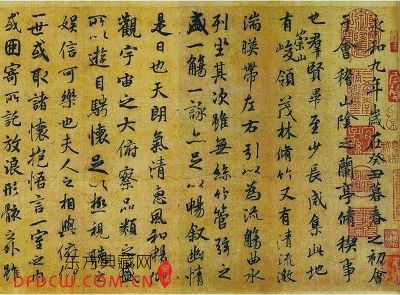 永和九年歲在癸丑暮春之初會
于會稽山陰之蘭亭脩稧事
也羣賢畢至少長咸集此地
有崇山峻領茂林脩竹又有清流激
湍暎帶左右引以為流觴曲水
列坐其次雖無絲竹管弦之
盛一觴一詠亦足以暢敘幽情
是日也天朗氣清惠風和暢仰
觀宇宙之大俯察品類之盛
所以遊目騁懷足以極視聽之
娛信可樂也夫人之相與俯仰
一世或取諸懷抱悟言一室之內
或因寄所託放浪形骸之外雖
东方典藏网
DFDCW.COM.CN